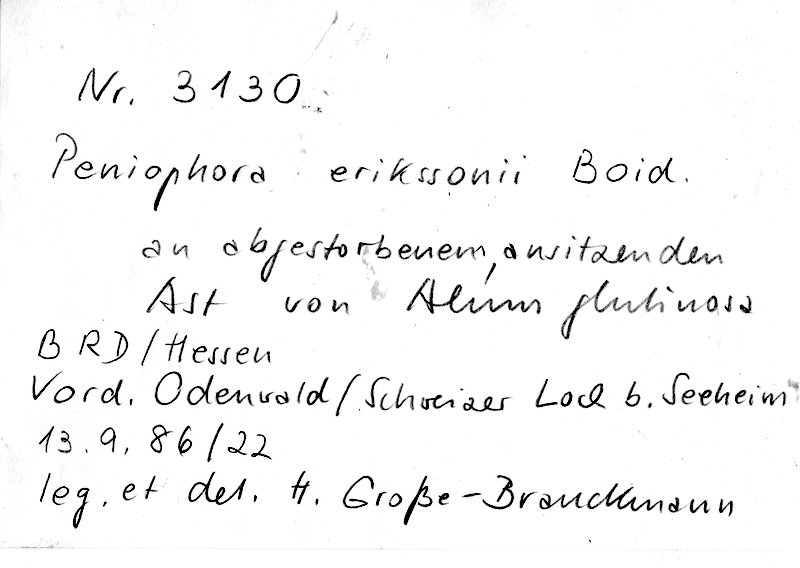 Nr. 3130
Peniophora erikssonii Boid.
an abgestorbenem, ansitzenden
Ast von glutinosa
BRD/Hessen
Vord. Odenwald/Schweizer Loch b. Seeheim
13.9.86/22
leg. et det. H. Große-Brauckmann